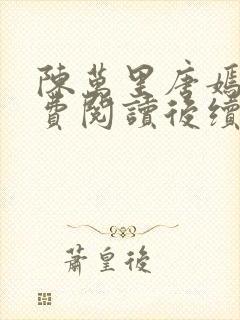 陳萬里唐嫣
費閱讀後續
蕭皇後